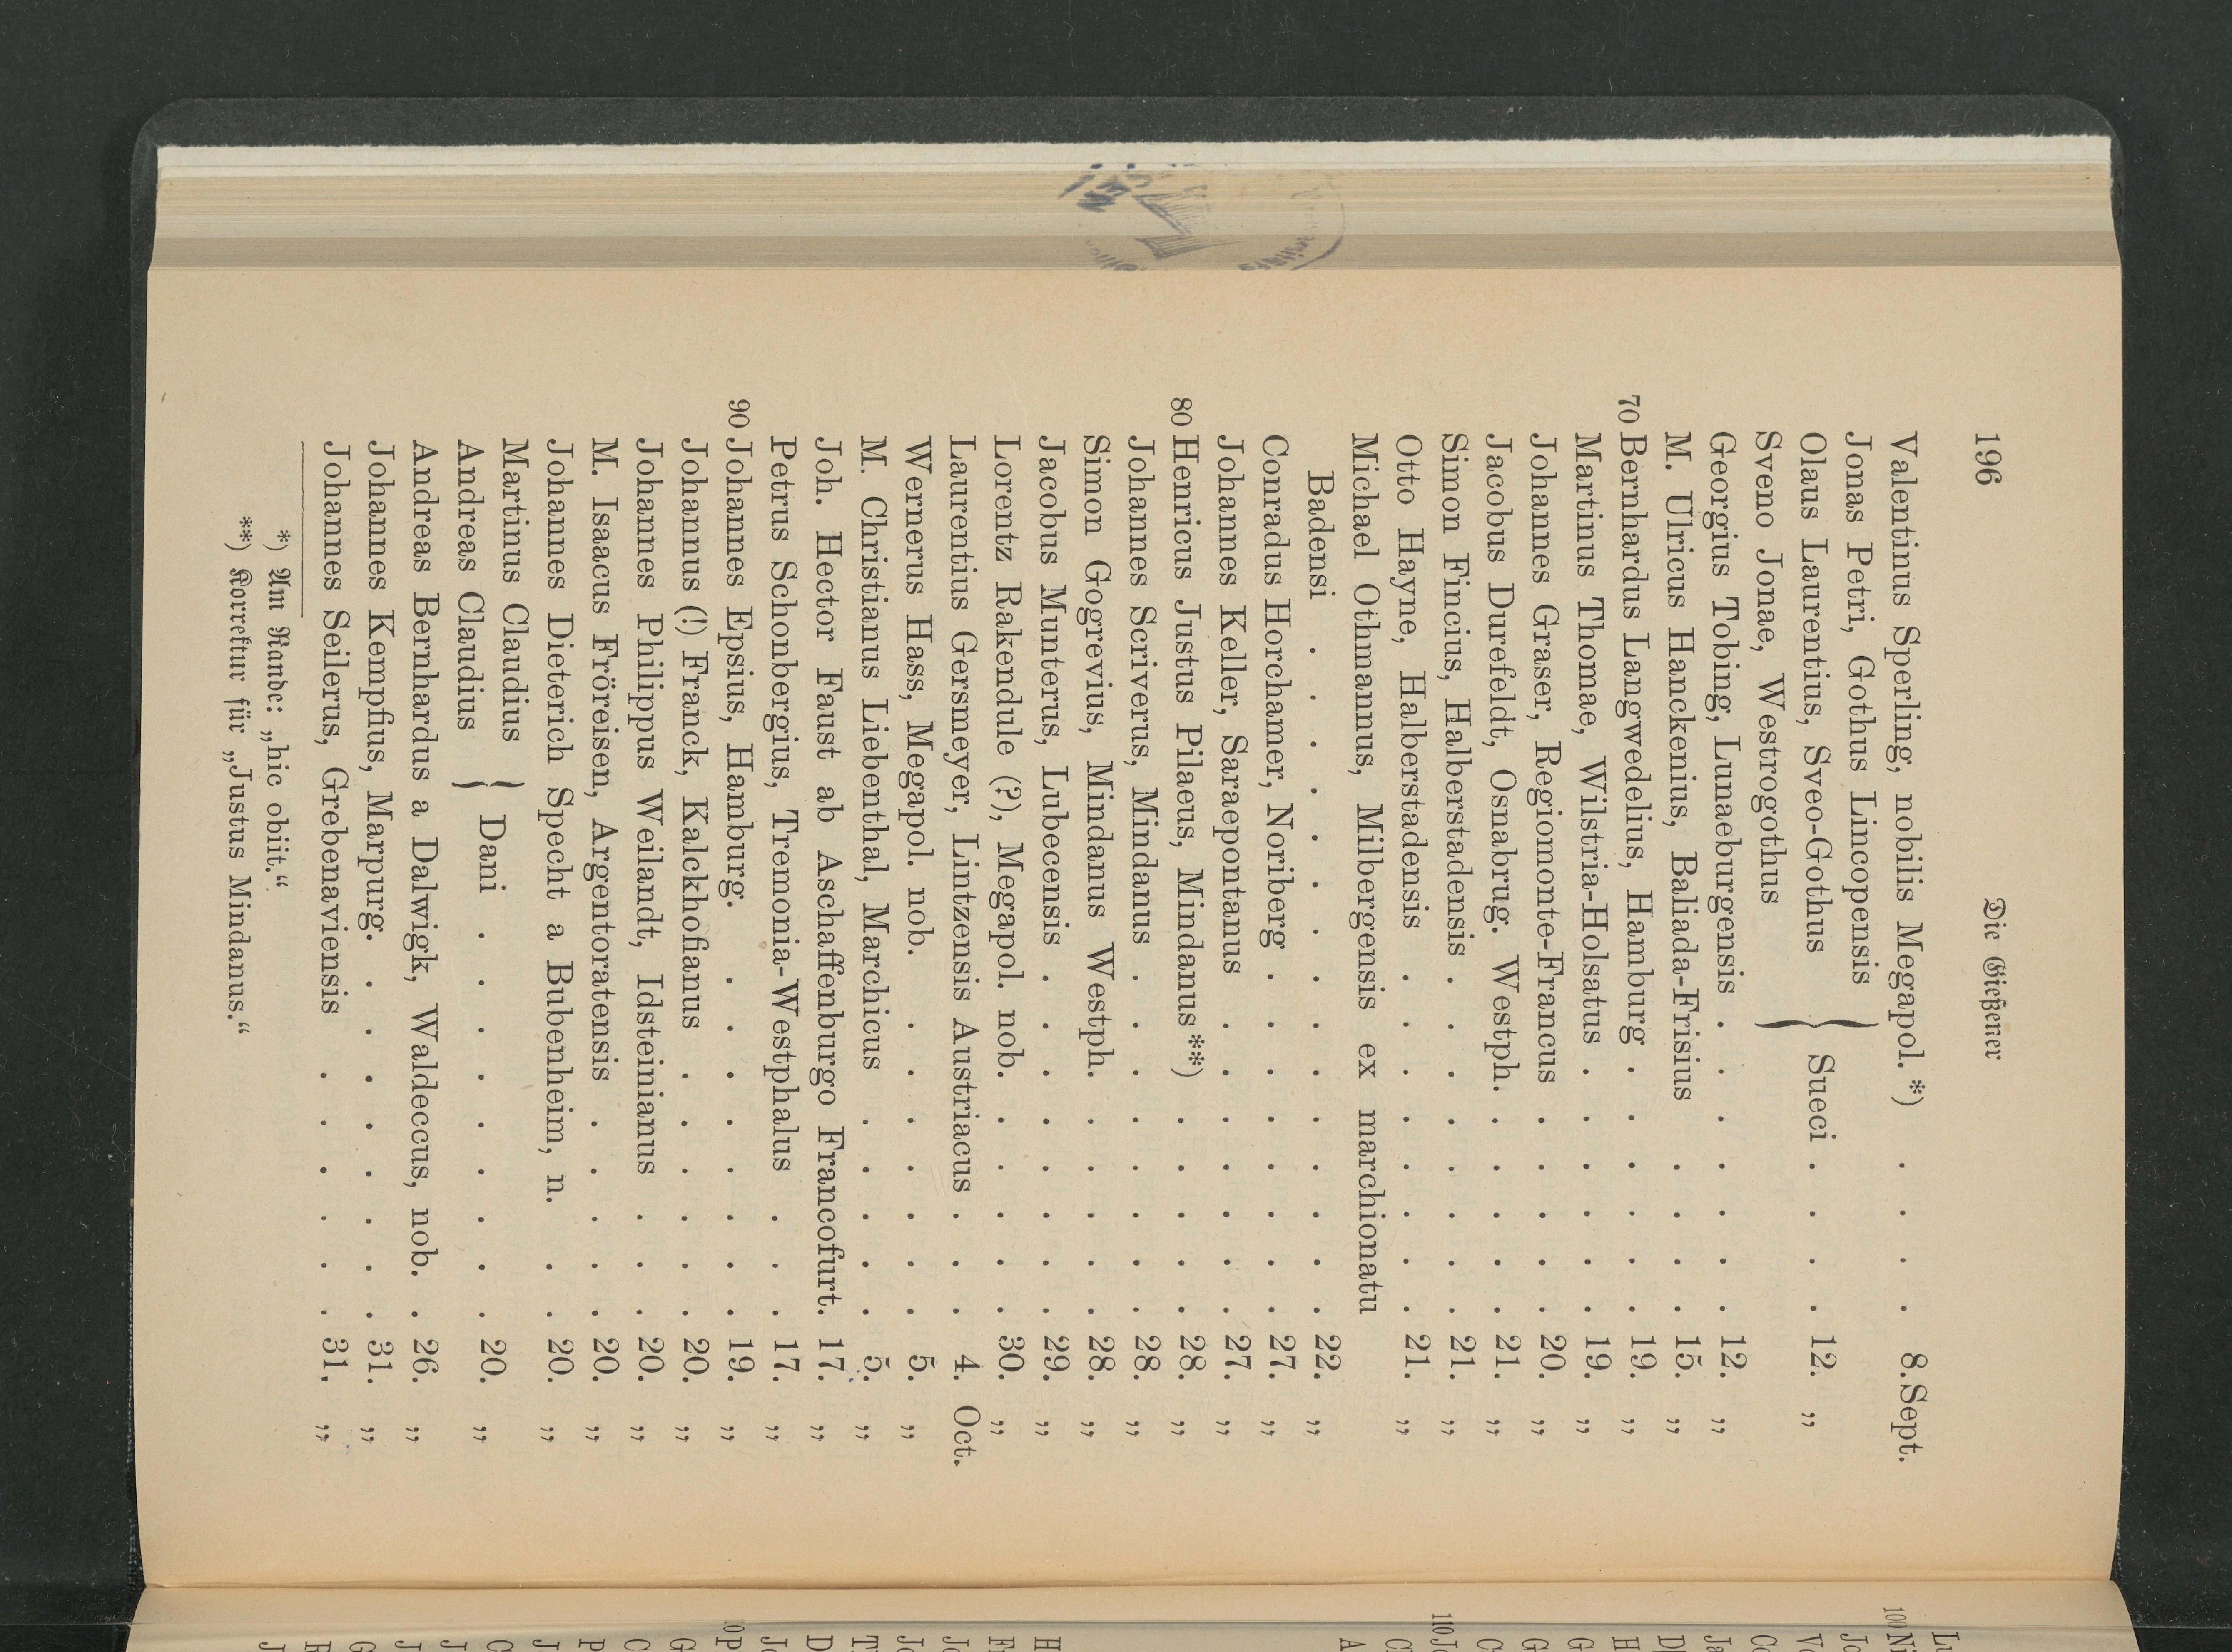 196 Die Gießener
Valentinus Sperling, nobilis Megapol. *) . . . . 8. Sept.
Jonas Petri, Gothus Lincopensis
Olaus Laurentius, Sveo-Gothus } Sueci . . . . 12. „
Sveno Jonae, Westrogothus
Georgius Tobing, Lunaeburgensis . . . . . . . 12. „
M. Ulricus Hanckenius, Baliada-Frisius . . . . 15. „
70 Bernhardus Langwedelius, Hamburg . . . . . . 19. „
Martinus Thomae, Wilstria-Holsatus . . . . . . 19. „
Johannes Graser, Regiomonte-Francus . . . . . 20. „
Jacobus Durefeldt, Osnabrug. Westph. . . . . . 21. „
Simon Fincius, Halberstadensis . . . . . . . . 21. „
Otto Hayne, Halberstadensis . . . . . . . . 21. „
Michael Othmannus, Milbergensis ex marchionatu
Badensi . . . . . . . . . . . . . . . 22. „
Conradus Horchamer, Noriberg . . . . . . . . 27. „
Johannes Keller, Saraepontanus . . . . . . . 27. „
80 Henricus Justus Pilaeus, Mindanus **) . . . . . 28. „
Johannes Scriverus, Mindanus . . . . . . . . 28. „
Simon Gogrevius, Mindanus Westph. . . . . . . 28. „
Jacobus Munterus, Lubecensis . . . . . . . . 29. „
Lorentz Rakendule (?), Megapol. nob. . . . . . . 30. „
Laurentius Gersmeyer, Lintzensis Austriacus . . . 4. Oct.
Wernerus Hass, Megapol. nob. . . . . . . . . 5. „
M. Christianus Liebenthal, Marchicus . . . . . 5. „
Joh. Hector Faust ab Aschaffenburgo Francofurt. 17. „
Petrus Schonbergius, Tremonia-Westphalus . . . 17. „
90 Johannes Epsius, Hamburg. . . . . . . . . 19. „
Johannus (!) Franck, Kalckhofianus . . . . . . 20. „
Johannes Philippus Weilandt, Idsteinianus . . . 20. „
M. Isaacus Fröreisen, Argentoratensis . . . . . 20. „
Johannes Dieterich Specht a Bubenheim, n. . . . 20. „
Martinus Claudius
Andreas Claudius } Dani . . . . . . . . . 20. „
Andreas Bernhardus a Dalwigk, Waldeccus, nob. . 26. „
Johannes Kempfius, Marpurg. . . . . . . . . 31. „
Johannes Seilerus, Grebenaviensis . . . . . . 31. „
*) Am Rande: „hic obiit.“
**) Korrektur für „Justus Mindanus.“